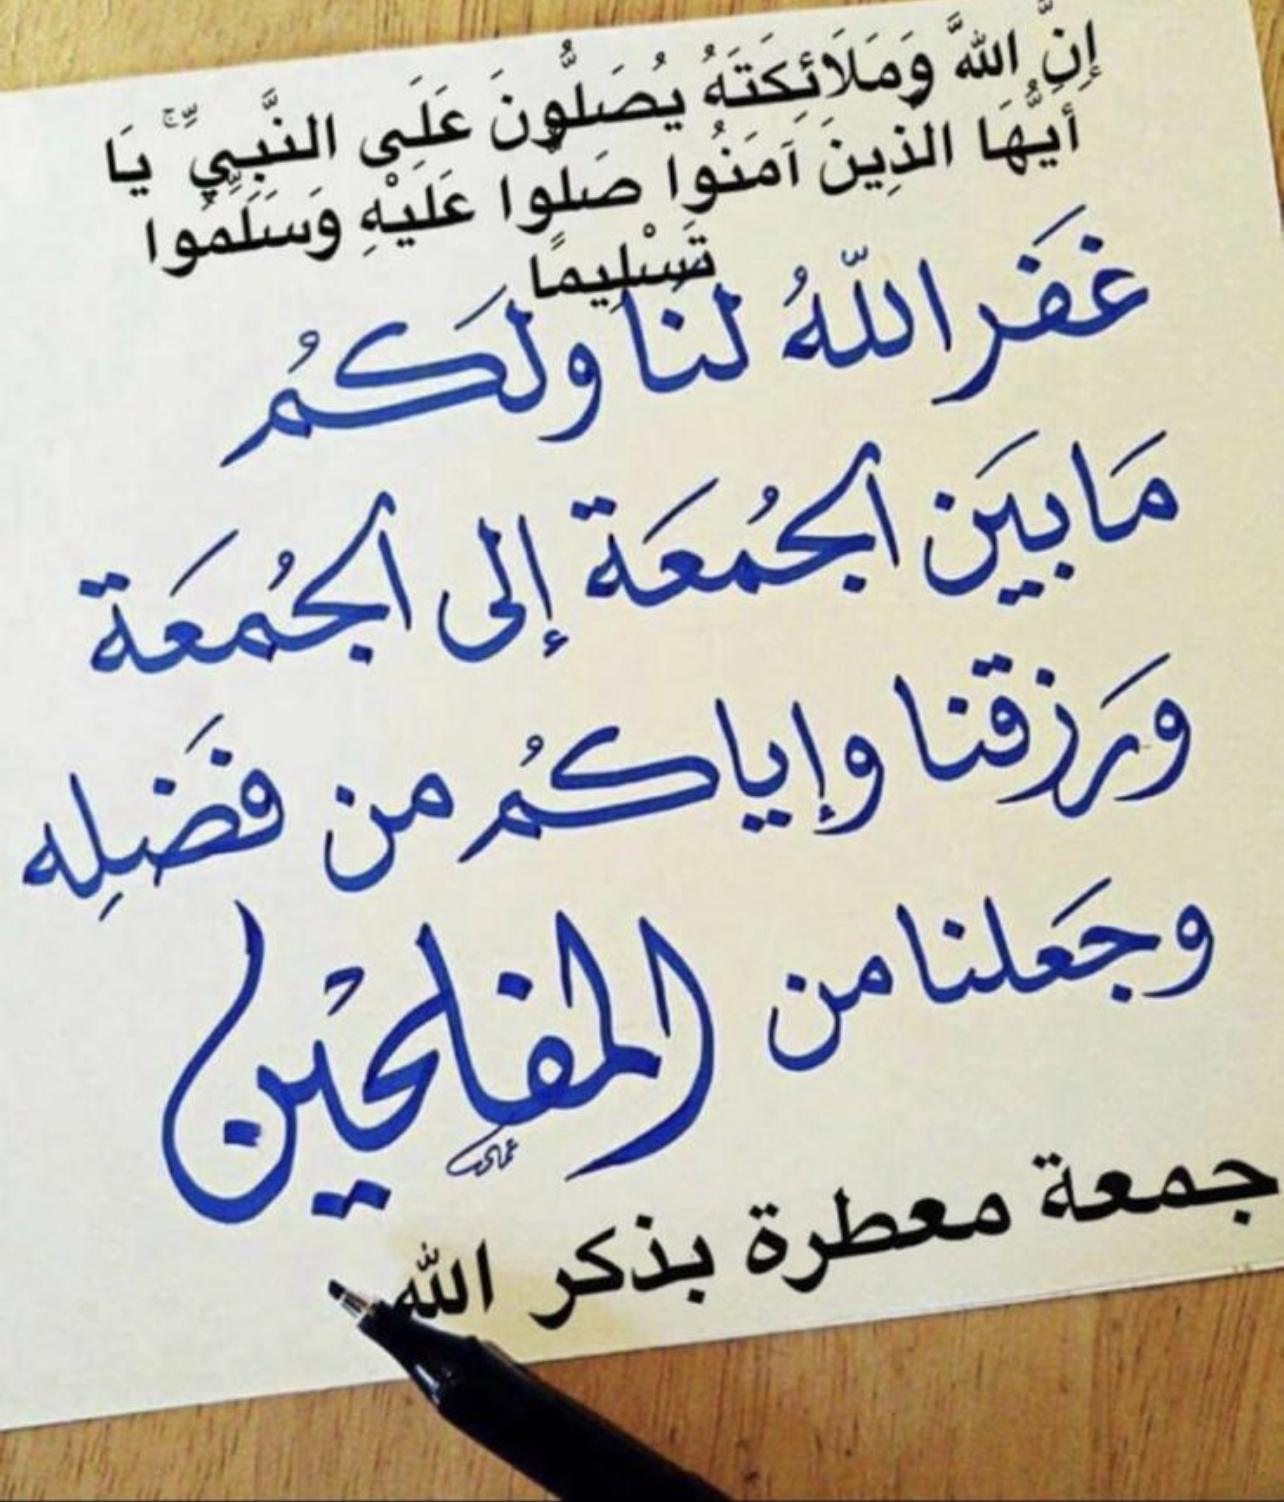 إِنَّ اللَّهَ وَمَلَائِكَتَهُ يُصَلُّونَ عَلَى النَّبِيِّ ۚ يَا
أَيُّهَا الَّذِينَ آمَنُوا صَلُّوا عَلَيْهِ وَسَلِّمُوا
تَسْلِيمًا
غَفَر اللّهُ لنَا ولَكمُ
مَا بيَن الجُمعَة إلى الجُمعَة
ورَزقنا وإياكمُ من فَضلِه
وجَعلنا من المفلحْين
جمعة معطرة بذكر الله